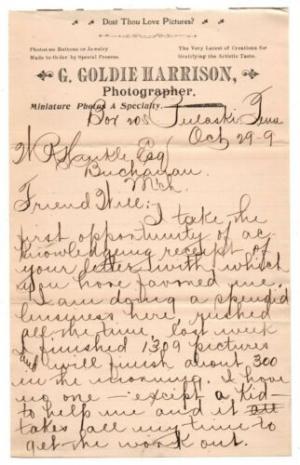 Dost Thou Love Pictures?
Photos on Buttons or Jewelry
Made to Order by Special Process.
The Very Latest of Creations for
Gratifying the Artistic Taste.
G. GOLDIE HARRISON,
Photographer.
Miniature Photos A Specialty.
Box 208 Pulaski, Tenn
Oct 29-9
W R Esq
Buchanan.
Mich.
Friend Will:-
I take the
first opportunity of ac-
knowledging receipt of
your letter with which
you have favored me.
I am doing a splendid
business here, rushed
all the time, last week
I finished 1309 pictures
and will finish about 300
in the morning. I have
no one - except a kid -
to help me and it all
takes all my time to
get the work out.